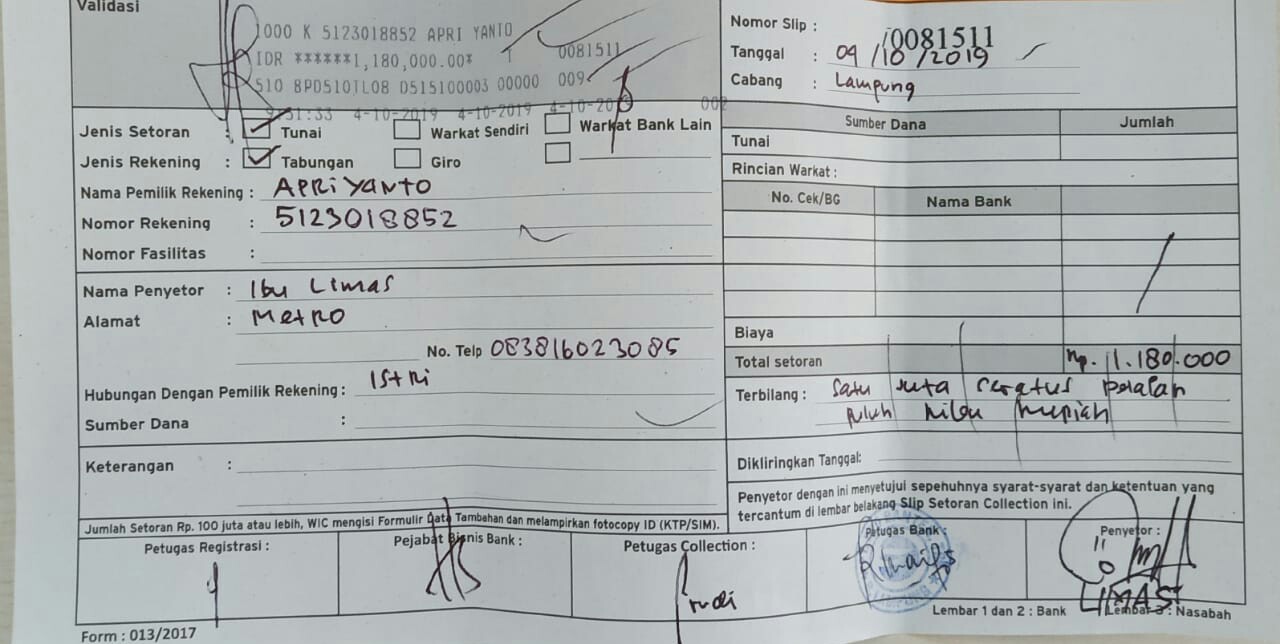 Validasi
1000 K 5123018852 APRI YANTO
IDR ******1,180,000.00* 0081511
510 BPD510TL08 D515100003 00000 009
9:51:33 4-10-2019 4-10-2019 4-10-2019 002
Jenis Setoran : Tunai Warkat Sendiri Warkat Bank Lain
Jenis Rekening : Tabungan Giro
Nama Pemilik Rekening : APRIYANTO
Nomor Rekening : 5123018852
Nomor Fasilitas :
Nama Penyetor : Ibu Limas
Alamat : Metro
No. Telp 083816023085
Hubungan Dengan Pemilik Rekening : Istri
Sumber Dana :
Keterangan :
Jumlah Setoran Rp. 100 juta atau lebih, WIC mengisi Formulir Data Tambahan dan melampirkan fotocopy ID (KTP/SIM).
Nomor Slip : 0081511
Tanggal : 04/10/2019
Cabang : Lampung
Sumber Dana Jumlah
Tunai
Rincian Warkat :
No. Cek/BG Nama Bank
Biaya
Total setoran Rp. 1.180.000
Terbilang : Satu Juta seratus delapan
puluh ribu rupiah
Dikliringkan Tanggal:
Penyetor dengan ini menyetujui sepenuhnya syarat-syarat dan ketentuan yang
tercantum di lembar belakang Slip Setoran Collection ini.
Petugas Registrasi : Pejabat Bisnis Bank : Petugas Collection : Petugas Bank Penyetor :
Rudi
LIMAS
Lembar 1 dan 2 : Bank Lembar 3 : Nasabah
Form : 013/2017